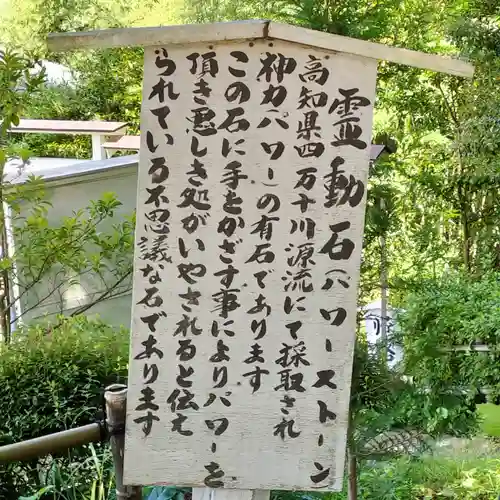 霊動石(パワーストーン
高知県四万十川源流にて採取され
神力パワーの有石であります
この石に手をかざす事によりパワーを
頂き悪しき処がいやされると伝え
られている不思議な石であります